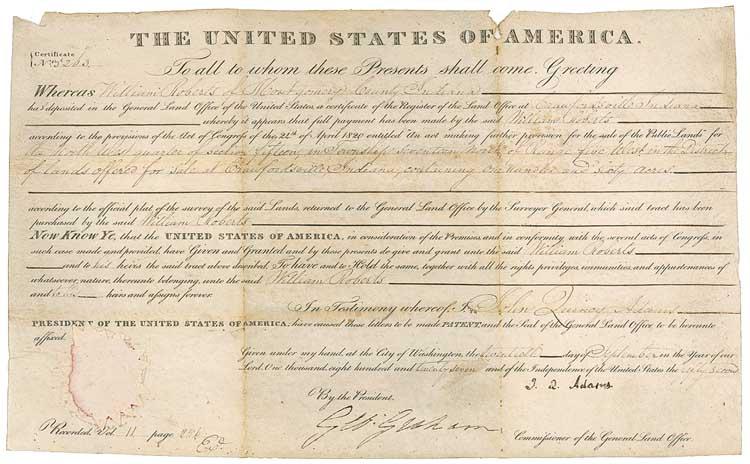 THE UNITED STATES OF AMERICA.
Certificate
No 5263
To all to whom these Presents shall come, Greeting
Whereas William Roberts of Montgomery County Indiana
has deposited in the General Land Office of the United States, a certificate of the Register of the Land Office at Crawfordsville Indiana
whereby it appears that full payment has been made by the said William Roberts
according to the provisions of the Act of Congress of the 24th of April 1820 entitled "An act making further provision for the sale of the Public Lands" for
the North West quarter of section fifteen, in Township seventeen North, of Range five West in the District
of lands offered for sale at Crawfordsville Indiana, containing one hundred and sixty acres
according to the official plat of the survey of the said Lands, returned to the General Land Office by the Surveyor General, which said tract has been
purchased by the said William Roberts
Now Know Ye, that the UNITED STATES OF AMERICA, in consideration of the Premises, and in conformity with the several acts of Congress, in
such case made and provided, have Given and Granted and by these presents do give and grant unto the said William Roberts
and to his heirs the said tract above described: To have and to Hold the same, together with all the rights, privileges, immunities, and appurtenances of
whatsoever nature, thereunto belonging, unto the said William Roberts
and his heirs and assigns forever.
In Testimony whereof, I, John Quincy Adams
PRESIDENT OF THE UNITED STATES OF AMERICA, have caused these letters to be made PATENT, and the Seal of the General Land Office to be hereunto
affixed.
Given under my hand, at the City of Washington, the day of September in the Year of our
Lord, One thousand, eight hundred and twenty seven and of the Independence of the United States the fifty second
J. Q. Adams
By the President.
Geo: Graham
Commissioner of the General Land Office.
Recorded, Vol 11 page